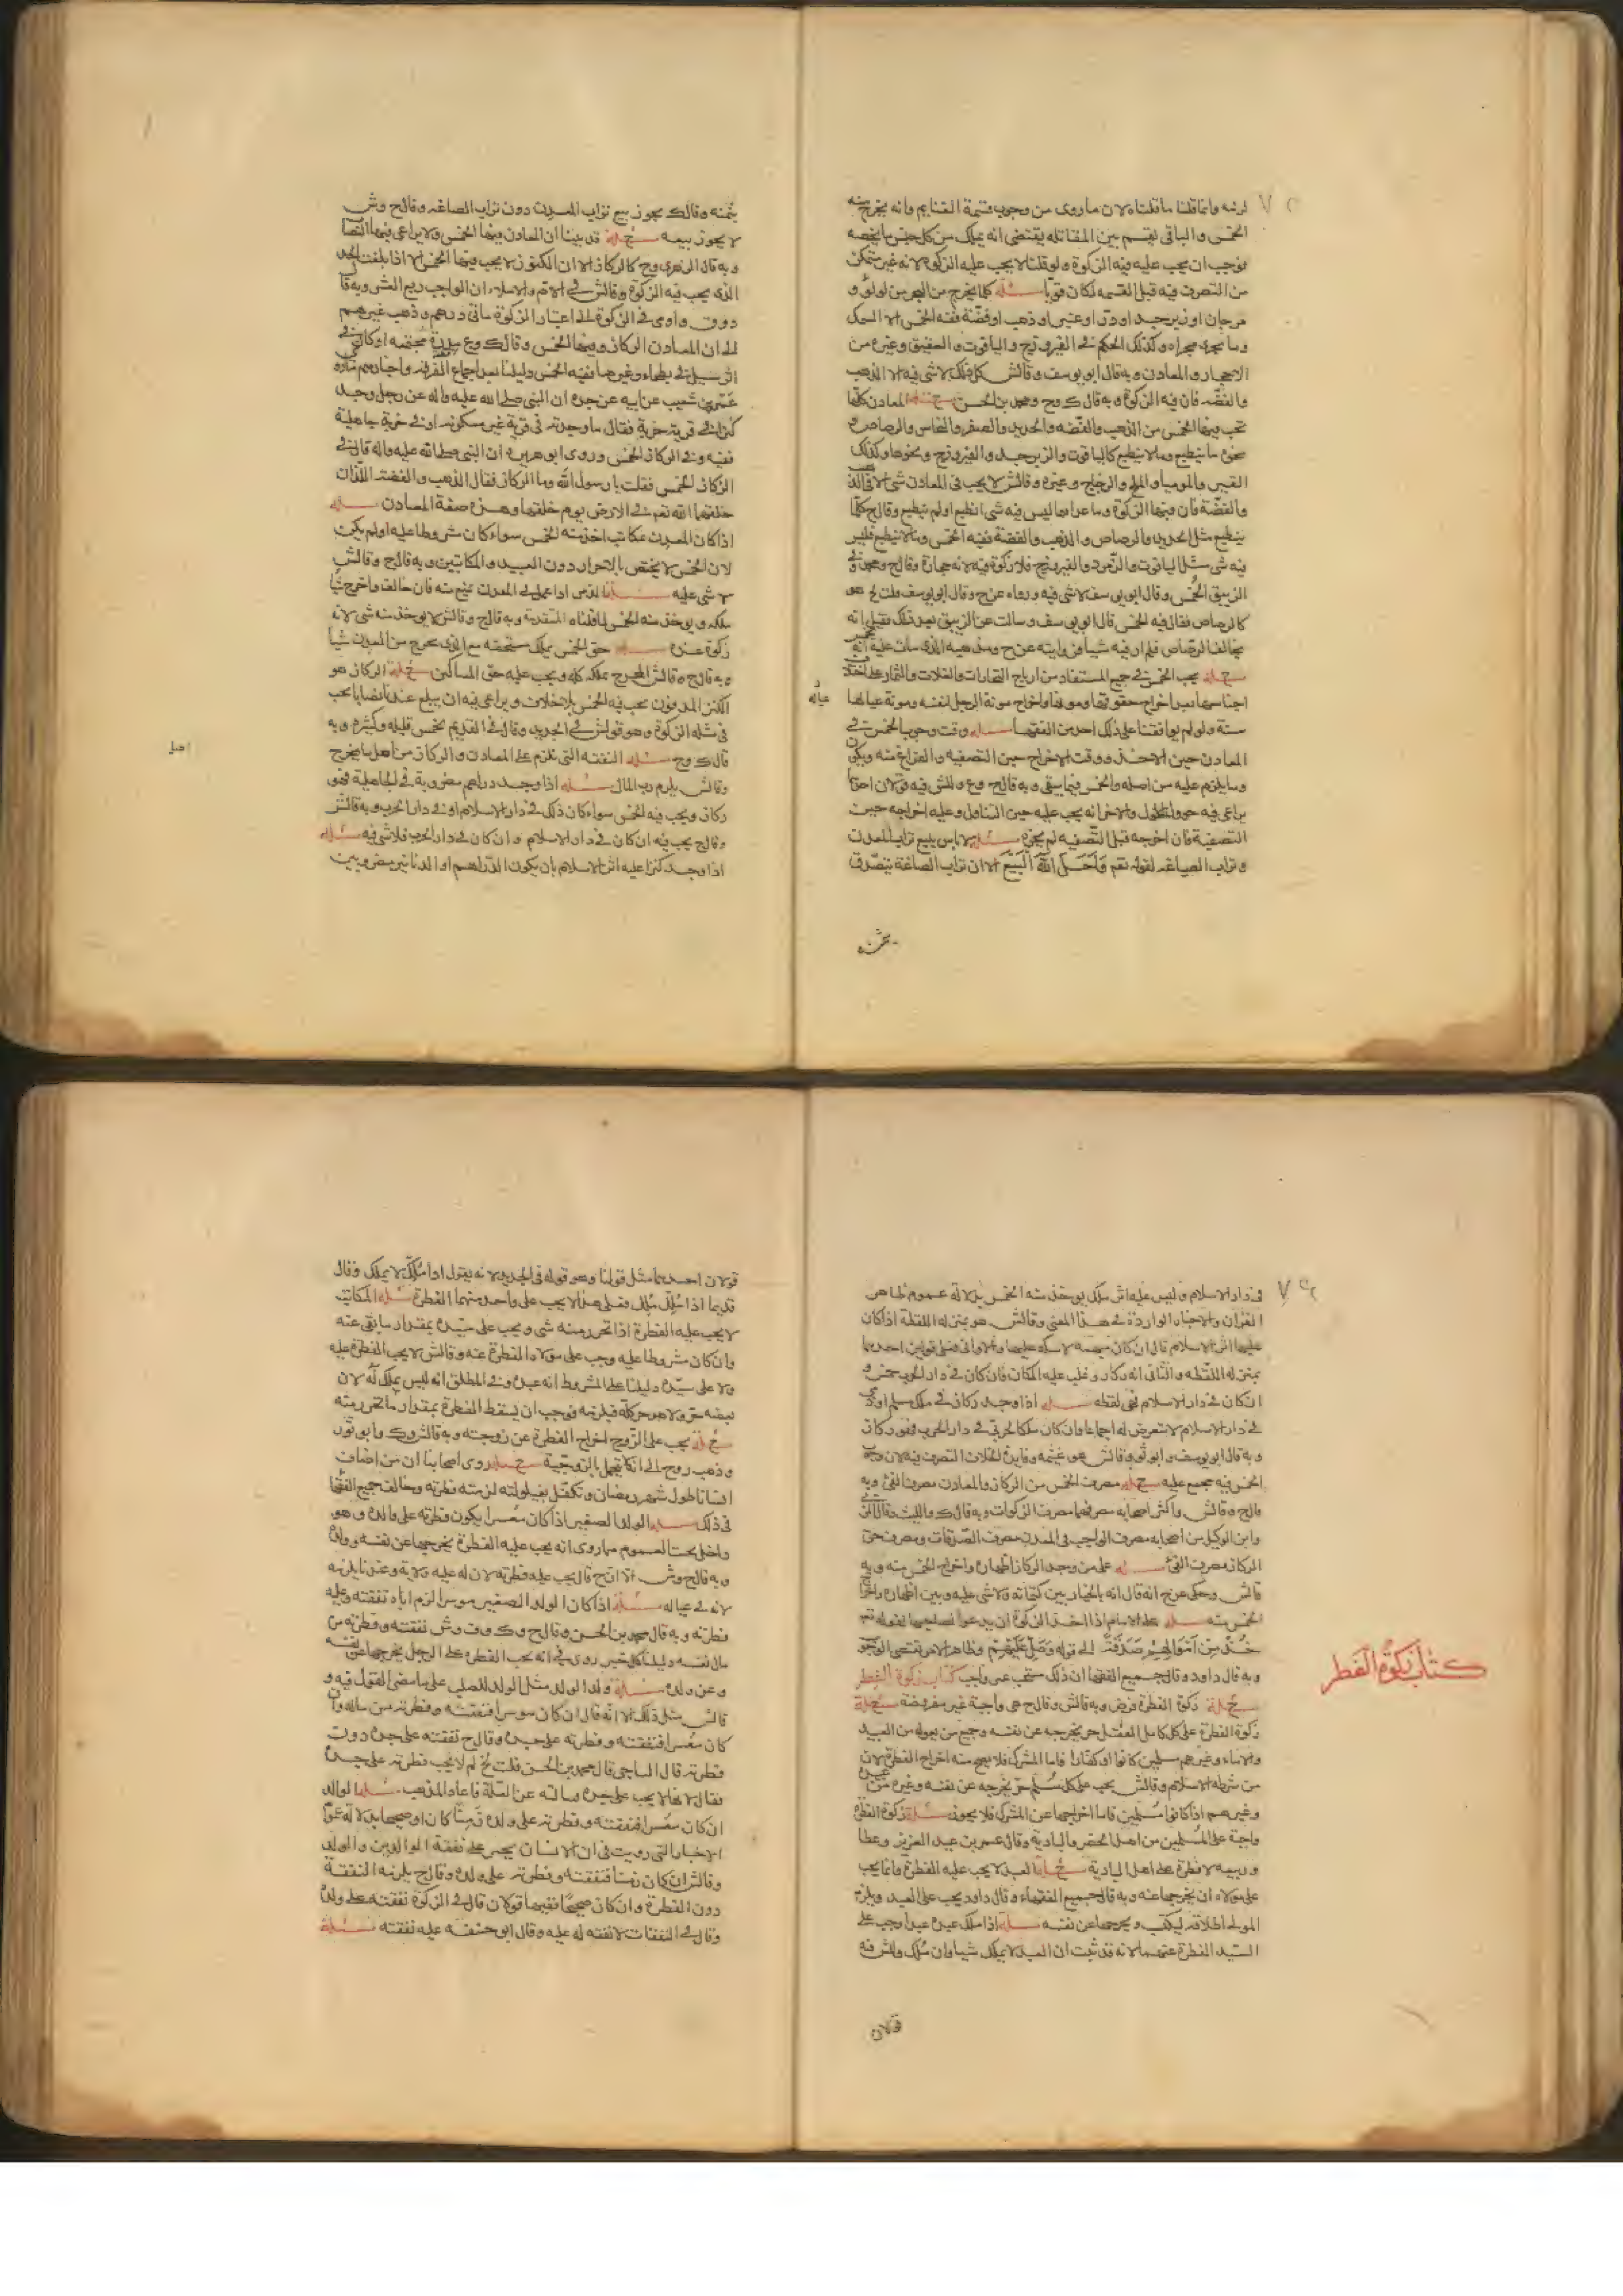 لزمه وانما قلنا ما قلناه لان ما روى من وجوب قسمة الغنايم وانه يخرج منه
الخمس والباقى يقسم بين المقاتله يقتضى انه يملك من كل جنس ما يخصه
فوجب ان يجب عليه فيه الزكوة ولو قلنا لا يجب عليه الزكوة لانه غير متمكن
من التصرف فيه قبل القسمه لكان قويا مسئله كلما يخرج من البحر من لولو و
مرجان او زبرجد او در او عنبر او ذهب او فضة ففيه الخمس الا السمك
وما يجرى مجراه وكذلك الحكم فى الفيروزج والياقوت والعقيق وغيره من
الاحجار والمعادن وبه قال ابو يوسف وقال ش كل ذلك لا شى فيه الا الذهب
والفضه فان فيه الزكوة وبه قال ك وح ومحمد بن الحسن مسئله المعادن كلها
تجب فيها الخمس من الذهب والفضه والحديد والصفر والنحاس والرصاص و
نحوه ما ينطبع ومما لا ينطبع كالياقوت والزبرجد والفيروزج ونحوها وكذلك
القير والموميا والملح والزجاج وغيره وقال ش لا يجب فى المعادن شى الا الذهب
والفضة فان فيها الزكوة وما عداها ليس فيه شى انطبع او لم ينطبع وقال ح كلما
ينطبع مثل الحديد والرصاص والذهب والفضة ففيه الخمس وما لا ينطبع فليس
فيه شى مثل الياقوت والزمرد والفيروزج فلا زكوة فيه لانه حجارة وقال ح ومحمد فى
الزيبق الخمس وقال ابو يوسف لا شى فيه ورواه عن ح وقال ابو يوسف قلت لح هو
كالرصاص فقال فيه الخمس قال ابو يوسف وسالت عن الزيبق بعد ذلك فقيل انه
يخالف الرصاص فلم ار فيه شيا فروايته عن ح ومذهبه الذى مات عليه انه
مسئله يجب الخمس فى جميع المستفاد من ارباح التجارات والغلات والثمار على اختلاف
اجناسها بعد اخراج حقوقها ومونها واخراج مونة الرجل لنفسه ومونة عياله
عياله
سنة ولم يوافقنا على ذلك احد من الفقها مسئله وقت وجوب الخمس فى
المعادن حين الاخذ ووقت الاخراج حين التصفيه والفراغ منه ويكون
وما يلزم عليه من اصله والخمس فيما يبقى وبه قال ح وع وللش فيه قولان احدهما
يراعى فيه حوول الحول والاخر انه يجب عليه حين التناول وعليه اخراجه حين
التصفية فان اخرجه قبل التصفيه لم يجزه مسئله لا باس ببيع تراب المعدن
وتراب الصياغه لقوله تعم واحل الله البيع الا ان تراب الصاغة يتصدق
بثمنه
بثمنه وقال ك يجوز بيع تراب المعدن دون تراب الصاغه وقال ح وش
لا يجوز بيعه مسئله قد بينا ان المعادن فيها الخمس ولا يراعى فيها النصاب
وبه قال الزهرى وح كالركاز الا ان الكنوز لا يجب فيها الخمس الا اذا بلغت الحد
الذى يجب فيه الزكوة وقال ش فى الام والاملاء ان الواجب ربع العشر وبه قال
واومى فى الزكوة الى اعتبار الزكوة ماتى درهم وذهب غيرهم
الى ان المعادن الركاز وفيها الخمس وقال ك وع بدرة مجتمعه او كانت فى
اثر سيل فى بطحاء وغيرها ففيه الخمس ودليلنا بعد اجماع الفرقه واخبارهم ما رواه
عمرو بن شعيب عن ابيه عن جده ان النبى صلى الله عليه واله عن رجل وجد
كنزا فى قرية خربة فقال ما وجدته فى قرية غير مسكونه او فى خربة جاهلية
ففيه وفى الركاز الخمس وروى ابو هريره ان النبى صلى الله عليه واله قال فى
الركاز الخمس فقلت يا رسول الله وما الركاز فقال الذهب والفضة اللذان
خلقهما الله تعم فى الارض يوم خلقها وهذه صفة المعادن مسئله
اذا كان المعدن لمكاتب اخذ منه الخمس سواء كان مشروطا عليه او لم يكن
لان الخمس لا يختص بالاحرار دون العبيد والمكاتبين وبه قال ح وقال ش
لا شى عليه مسئله الذمى اذا عمل فى المعدن يمنع منه فان خالف واخرج شيا
ملكه ويوخذ منه الخمس لما قلناه المتقدمة وبه قال ح وقال ش لا يوخذ منه شى لانه
زكوة عنده مسئله حق الخمس يملك مستحقه مع الذى يخرج من المعدن شيا
وبه قال ح وقال ش المخرج يملكه كله ويجب عليه حق المساكين مسئله الركاز هو
الكنز المدفون يجب فيه الخمس بلا خلاف ويراعى فيه ان يبلغ عندنا نصابا يجب
فى مثله الزكوة وهو قول ش فى الجديد وقال فى القديم يخمس قليله وكثيره وبه
قال ك وح مسئله النفقه التى تلزم على المعادن والركاز من اصل ما يخرج
اصل
وقال ش يلزم رب المال مسئله اذا وجد دراهم مضروبة فى الجاهلية فهو
ركاز ويجب فيه الخمس سواء كان ذلك فى دار الاسلام او فى دار الحرب وبه قال ش
وقال ح يجب فيه ان كان فى دار الاسلام وان كان فى دار الحرب فلا شى فيه مسئله
اذا وجد كنزا عليه اثر الاسلام بان يكون الدراهم او الدنانير مضروبين
فى دار الاسلام وليس عليه اثر ملك يوخذ منه الخمس بدلالة عموم ظاهر
القران والاخبار الواردة فى هذا المعنى وقال ش هو بمنزله اللقطة اذا كان
عليها اثر الاسلام قال ان كان مبهمه لا سكه عليها والاوانى فعلى قولين احدهما
بمنزله اللقطه والثانى انه ركاز وغلب عليه المكان فان كان فى دار الحرب خمس و
ان كان فى دار الاسلام فهى لقطه مسئله اذا وجد ركاز فى ملك مسلم او ذمى
فى دار الاسلام لا يتعرض له اجماعا وان كان ملكا لحربى فى دار الحرب فهو ركاز
وبه قال ابو يوسف وابو ثور وقال ش هو غنيمه وفايدة الخلاف التصرف فيه لان وجوب
الخمس فيه مجمع عليه مسئله مصرف الخمس من الركاز والمعادن مصرف الفئ وبه
قال ح وقال ش واكثر اصحابه مصرفهما مصرف الزكوات وبه قال ك والليث وقال المزنى
وابن الوكيل من اصحابه مصرف الواجب فى المعدن مصرف الصدقات ومصرف حق
الركاز مصرف الفئ مسئله على من وجد الركاز اظهاره واخراج الخمس منه وبه
قال ش وحكى عن ح انه قال انه بالخيار بين كتمانه ولا شى عليه وبين اظهاره واخراج
الخمس منه مسئله على الامام اذا اخذ الزكوة ان يدعو لصاحبها لقوله تعم
خذ من اموالهم صدقة الى قوله وصل عليهم وظاهر الامر يقتضى الوجوب
وبه قال داود وقال جميع الفقها ان ذلك مستحب غير واجب كتاب زكوة الفطر
كتاب زكوة الفطر
مسئله زكوة الفطرة فرض وبه قال ش وقال ح هى واجبة غير مفروضة مسئله
زكوة الفطرة على كل كامل العقل حر يخرجه عن نفسه وجميع من يعوله من العبيد
والاماء وغيرهم مسلمين كانوا او كفارا فاما المشرك فلا يصح منه اخراج الفطرة لان
من شرطه الاسلام وقال ش يجب على كل مسلم حر يخرجه عن نفسه وغيره من
وغيرهم اذا كانوا مسلمين فاما اخراجها عن المشرك فلا يجوز مسئله زكوة الفطرة
واجبة على المسلمين من اهل الحضر والبادية وقال عمر بن عبد العزيز وعطا
وربيعه لا فطرة على اهل البادية مسئله العبد لا يجب عليه الفطرة وانما يجب
على مولاه ان يخرجها عنه وبه قال جميع الفقهاء وقال داود يجب على العبد ويلزم
المولى اطلاقه ليكتسب ويخرجها عن نفسه مسئله اذا ملك عبده عبدا وجب على
السيد الفطرة عنهما لانه قد ثبت ان العبد لا يملك شيا وان ملك وللش فيه
قولان
قولان احدهما مثل قولنا وهو قوله فى الجديد لانه يقول اذا ملك لا يملك وقال
قديما اذا ملك ملك فعلى هذا لا يجب على واحد منهما الفطرة مسئله المكاتب
لا يجب عليه الفطرة اذا تحرر منه شى ويجب على سيده بمقدار ما بقى عنه
وان كان مشروطا عليه وجب على مولاه الفطرة عنه وقال ش لا يجب الفطرة عليه
ولا على سيده دليلنا على المشروط انه عبده وفى المطلق انه ليس يملك له لان
بعضه حر ولا هو حر كله فيلزمه فوجب ان يسقط الفطرة بمقدار ما تحرر منه
مسئله يجب على الزوج اخراج الفطرة عن زوجته وبه قال ش وك وابو ثور
وذهب ح الى انها لا يتحمل بالزوجية مسئله روى اصحابنا ان من اضاف
انسانا طول شهر رمضان وتكفل بعيلولته لزمته فطرته وخالف جميع الفقها
فى ذلك مسئله الولد الصغير اذا كان معسرا يكون فطرته على والده وهو
داخل تحت العموم مما روى انه يجب عليه الفطرة يخرجها عن نفسه وولده
وبه قال ح وش الا ان ح قال يجب عليه فطرته لان له عليه ولاية وعندنا يلزمه
لانه فى عياله مسئله اذا كان الولد الصغير موسرا لزم اباه نفقته وعليه
فطرته وبه قال محمد بن الحسن وقال ح وك وف وش نفقته وفطرته من
مال نفسه ودليلنا كل خبر روى فى انه يجب الفطرة على الرجل يخرجها عن نفسه
وعن ولده مسئله ولد الولد مثل الولد للصلب على ما مضى القول فيه و
قال ش مثل ذلك الا انه قال ان كان موسرا فنفقته وفطرته من ماله وان
كان معسرا فنفقته وفطرته على جده وقال ح نفقته على جده دون
فطرته قال الساجى قال محمد بن الحسن قلت لح لم لا يجب فطرته على جده
فقال لا يجب على جده وسالته عن العلة فاعاد المذهب مسئله الوالد
ان كان معسرا فنفقته وفطرته على ولده زمنا كان او صحيحا بدلالة عموم
الاخبار التى رويت فى ان الانسان يجبر على نفقة الوالدين والولد
وقال ش ان كان زمنا فنفقته وفطرته على ولده وقال ح يلزمه النفقة
دون الفطرة وان كان صحيحا ففيها قولان قال فى الزكوة نفقته على ولده
وقال فى النفقات لا نفقة له عليه وقال ابو حنيفه عليه نفقته مسئله